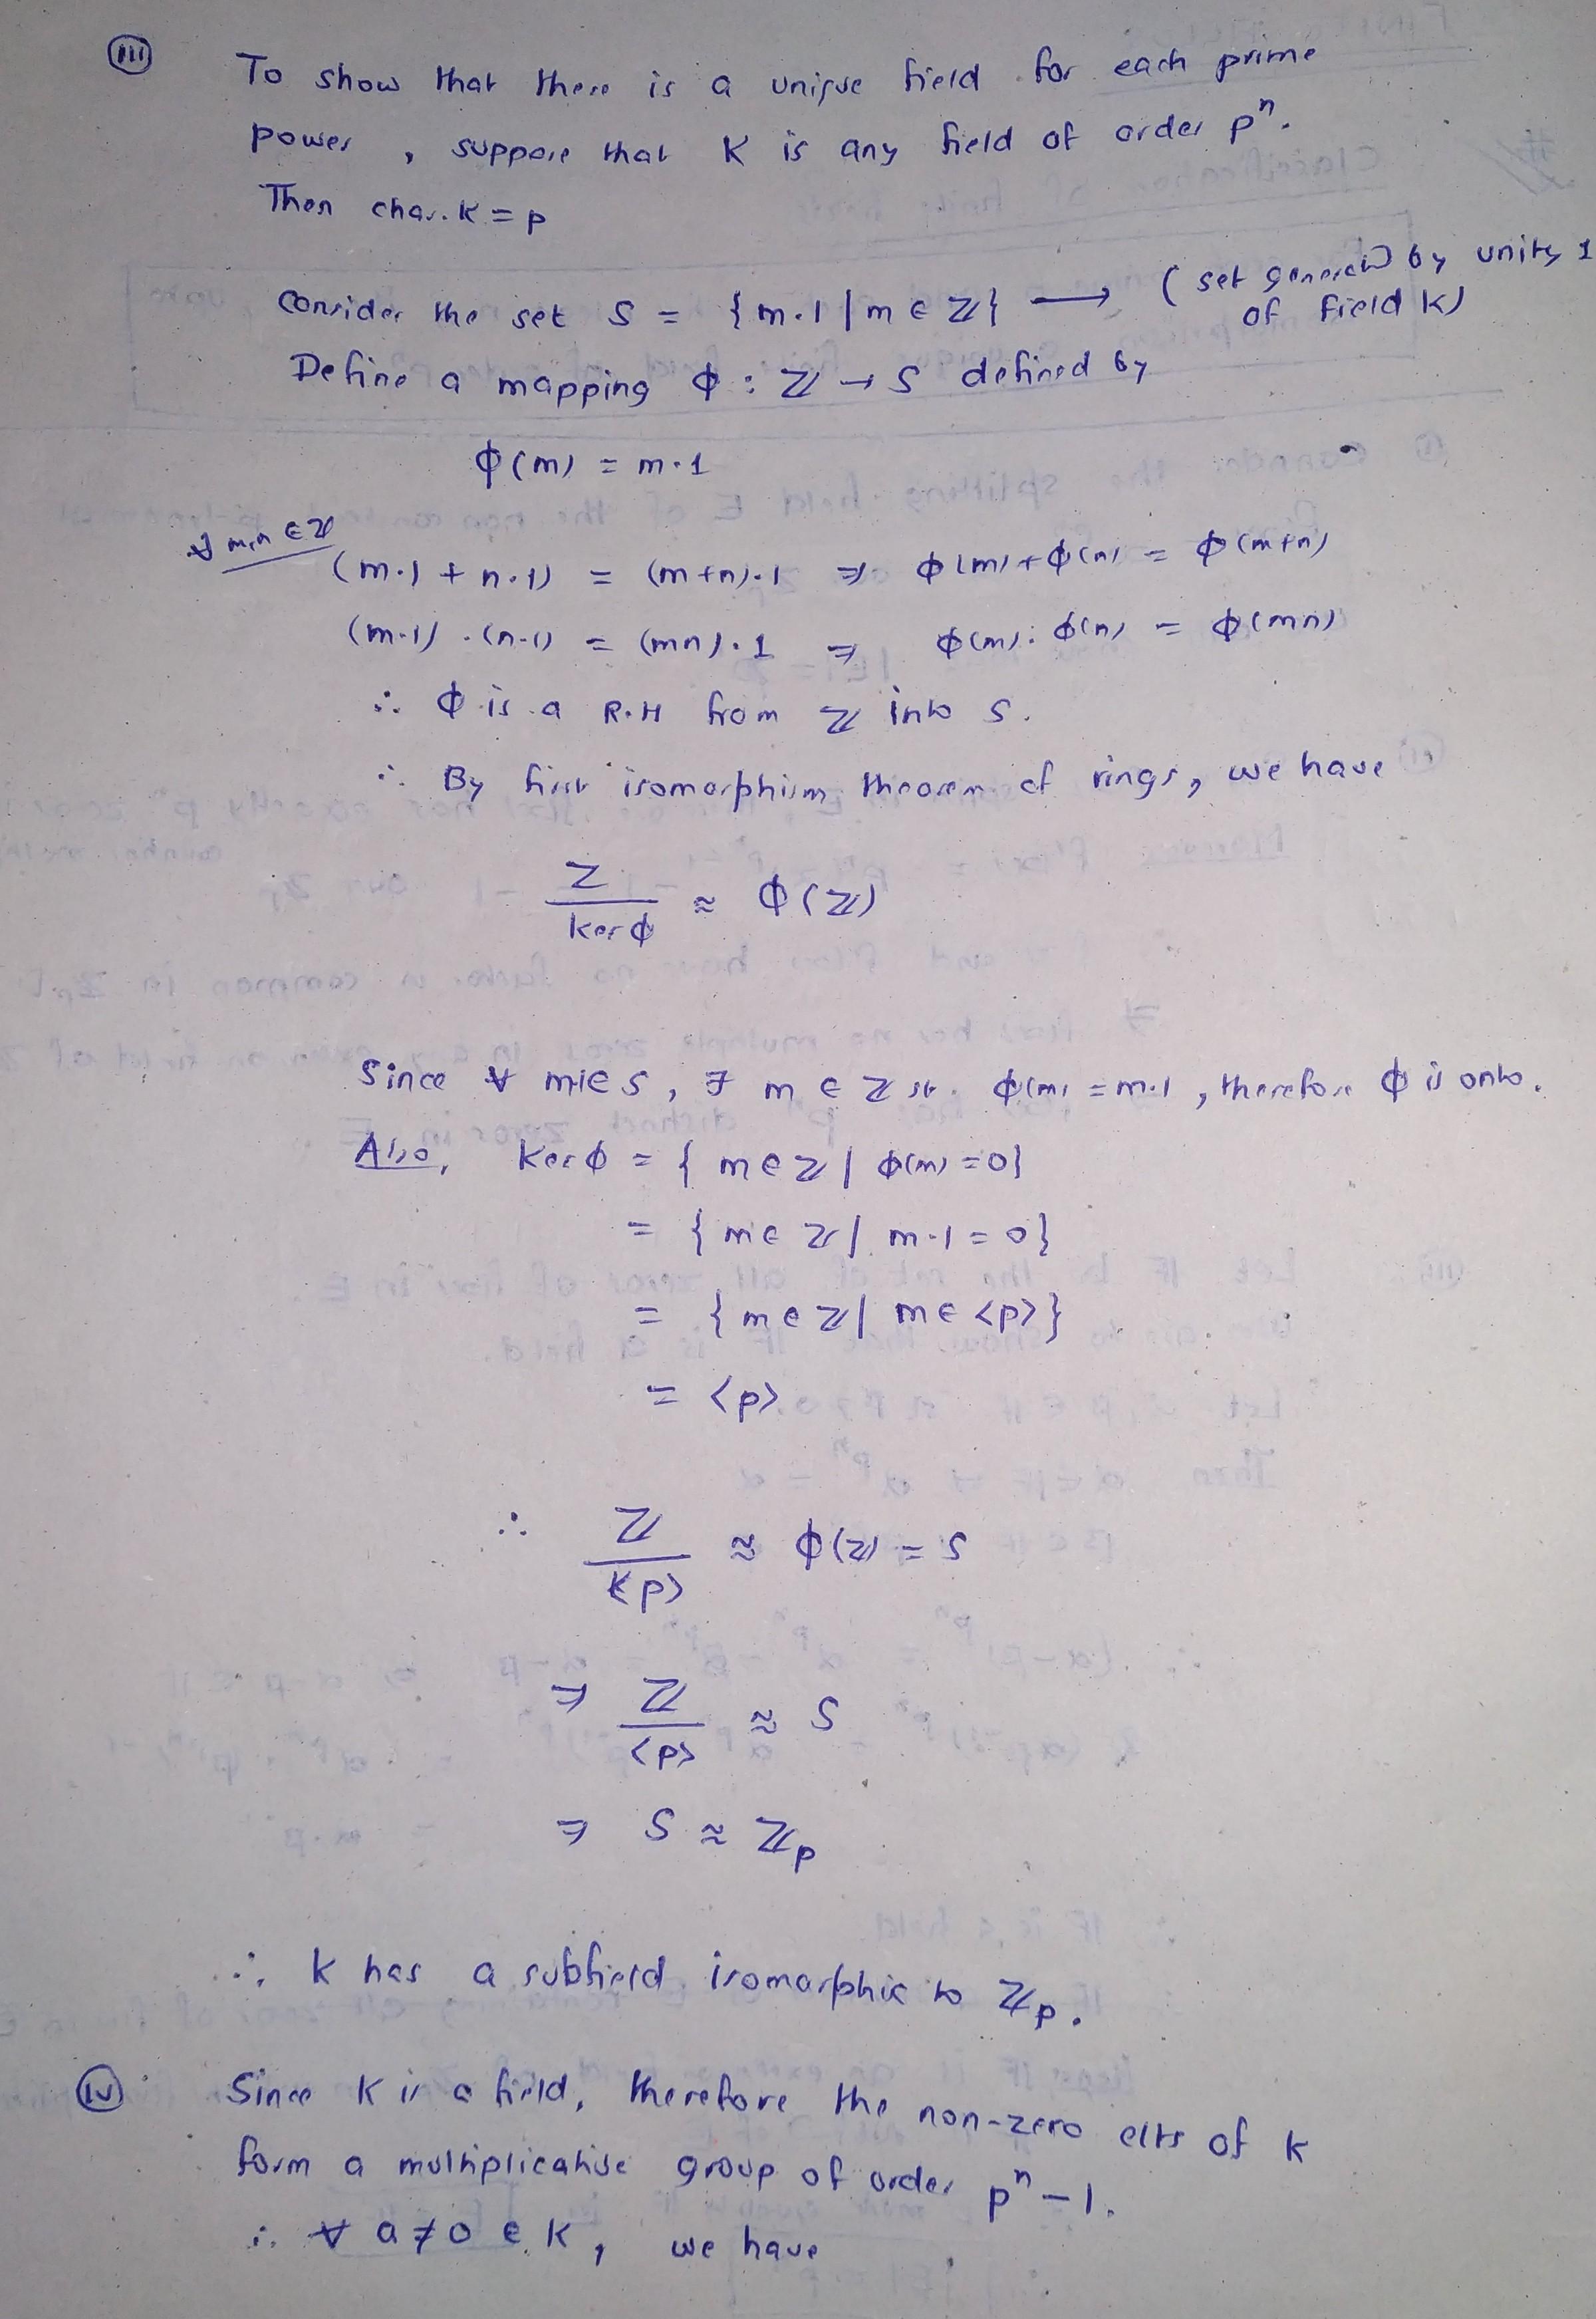 (iii) To show that there is a unique field for each prime
power, suppose that K is any field of order pⁿ.
Then char. K = p
Consider the set S = {m.1 | m ∈ ℤ} → (set generated by unity 1
of field K)
Define a mapping ϕ : ℤ → S defined by
ϕ(m) = m.1
∀ m,n ∈ ℤ
(m.1 + n.1) = (m+n).1 ⇒ ϕ(m)+ϕ(n) = ϕ(m+n)
(m.1) . (n.1) = (mn).1 ⇒ ϕ(m).ϕ(n) = ϕ(mn)
∴ ϕ is a R.H from ℤ into S.
∴ By first isomorphism theorem of rings, we have
Z/ker ϕ ≈ ϕ(ℤ)
Since ∀ m.1 ∈ S, ∃ m ∈ Z st. ϕ(m) = m.1, therefore ϕ is onto.
Also, Ker ϕ = {m ∈ ℤ | ϕ(m) = 0}
= {m ∈ ℤ | m.1 = 0}
= {m ∈ ℤ | m ∈ <p>}
= <p>
∴ ℤ/<p> ≈ ϕ(ℤ) = S
⇒ ℤ/<p> ≈ S
⇒ S ≈ ℤp
∴ K has a subfield isomorphic to ℤp.
(iv) Since K is a field, therefore the non-zero elts of K
form a multiplicative group of order pⁿ-1.
∴ ∀ a ≠ 0 ∈ K, we have